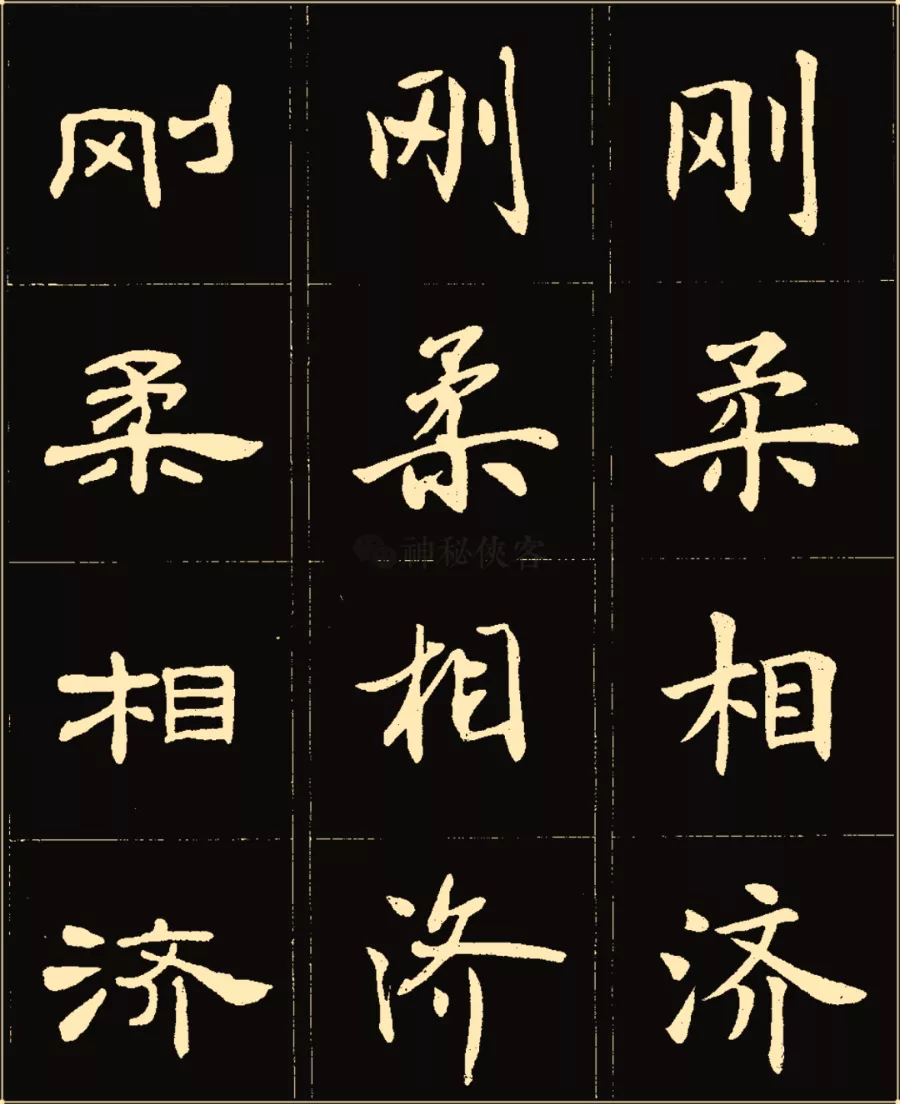 刚 刚 刚
柔 柔 柔
相 相 相
济 济 济
神秘侠客